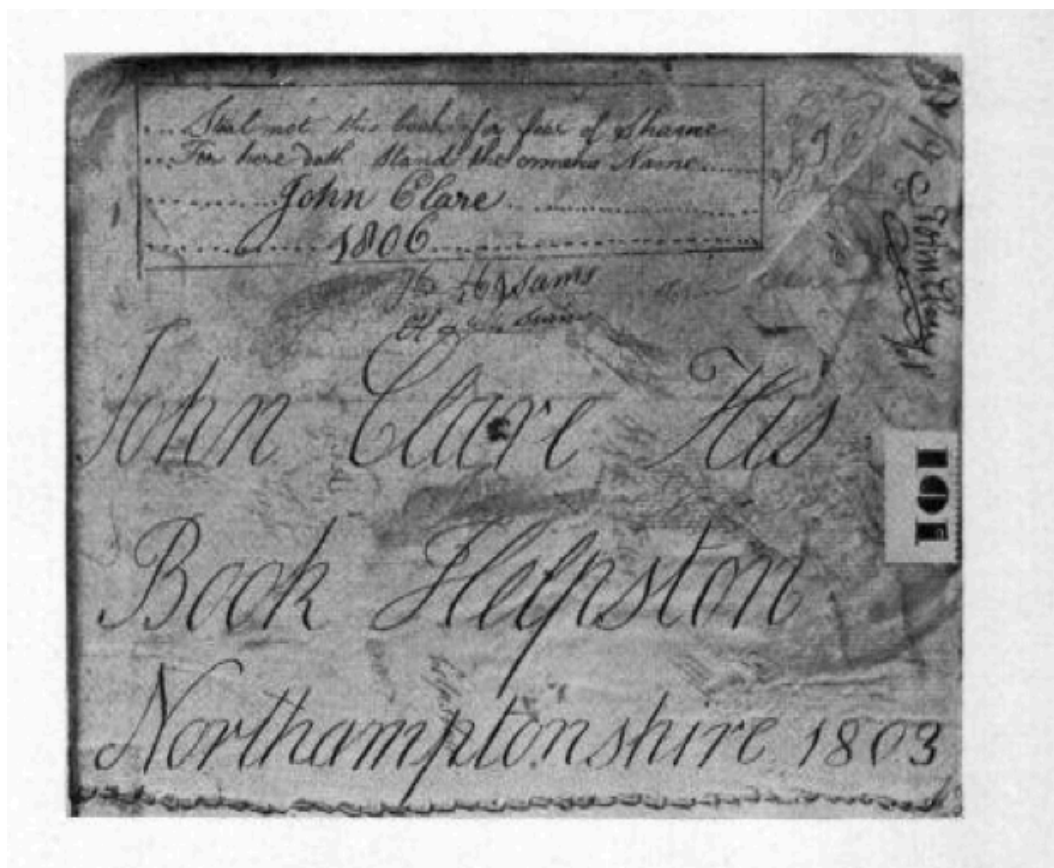 Steal not this book for fear of Shame
For here doth stand the owners Name
John Clare
1806
John Clare His
Book Helpston
Northamptonshire 1803
101